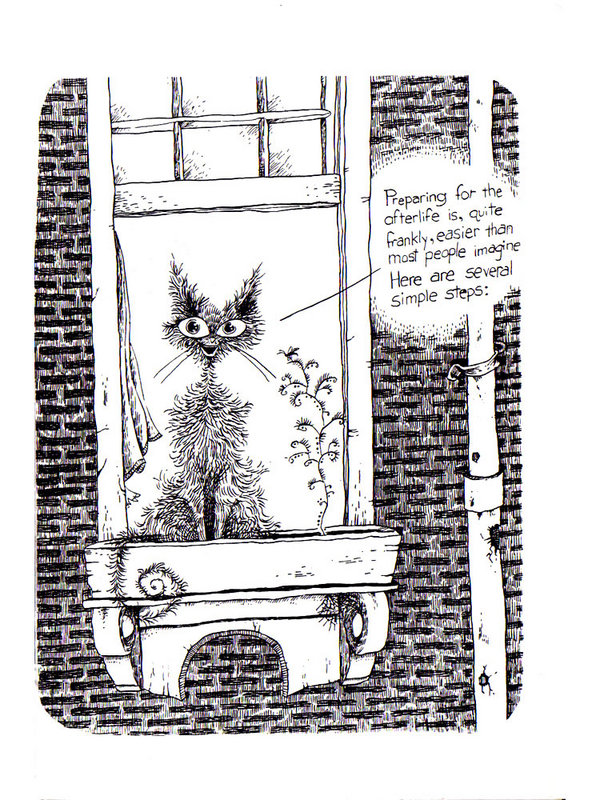 Preparing for the
afterlife is, quite
frankly, easier than
most people imagine
Here are several
simple steps: